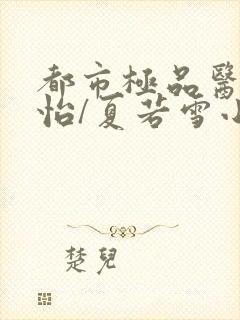 都市極品醫
怡/夏若雪小
楚兒